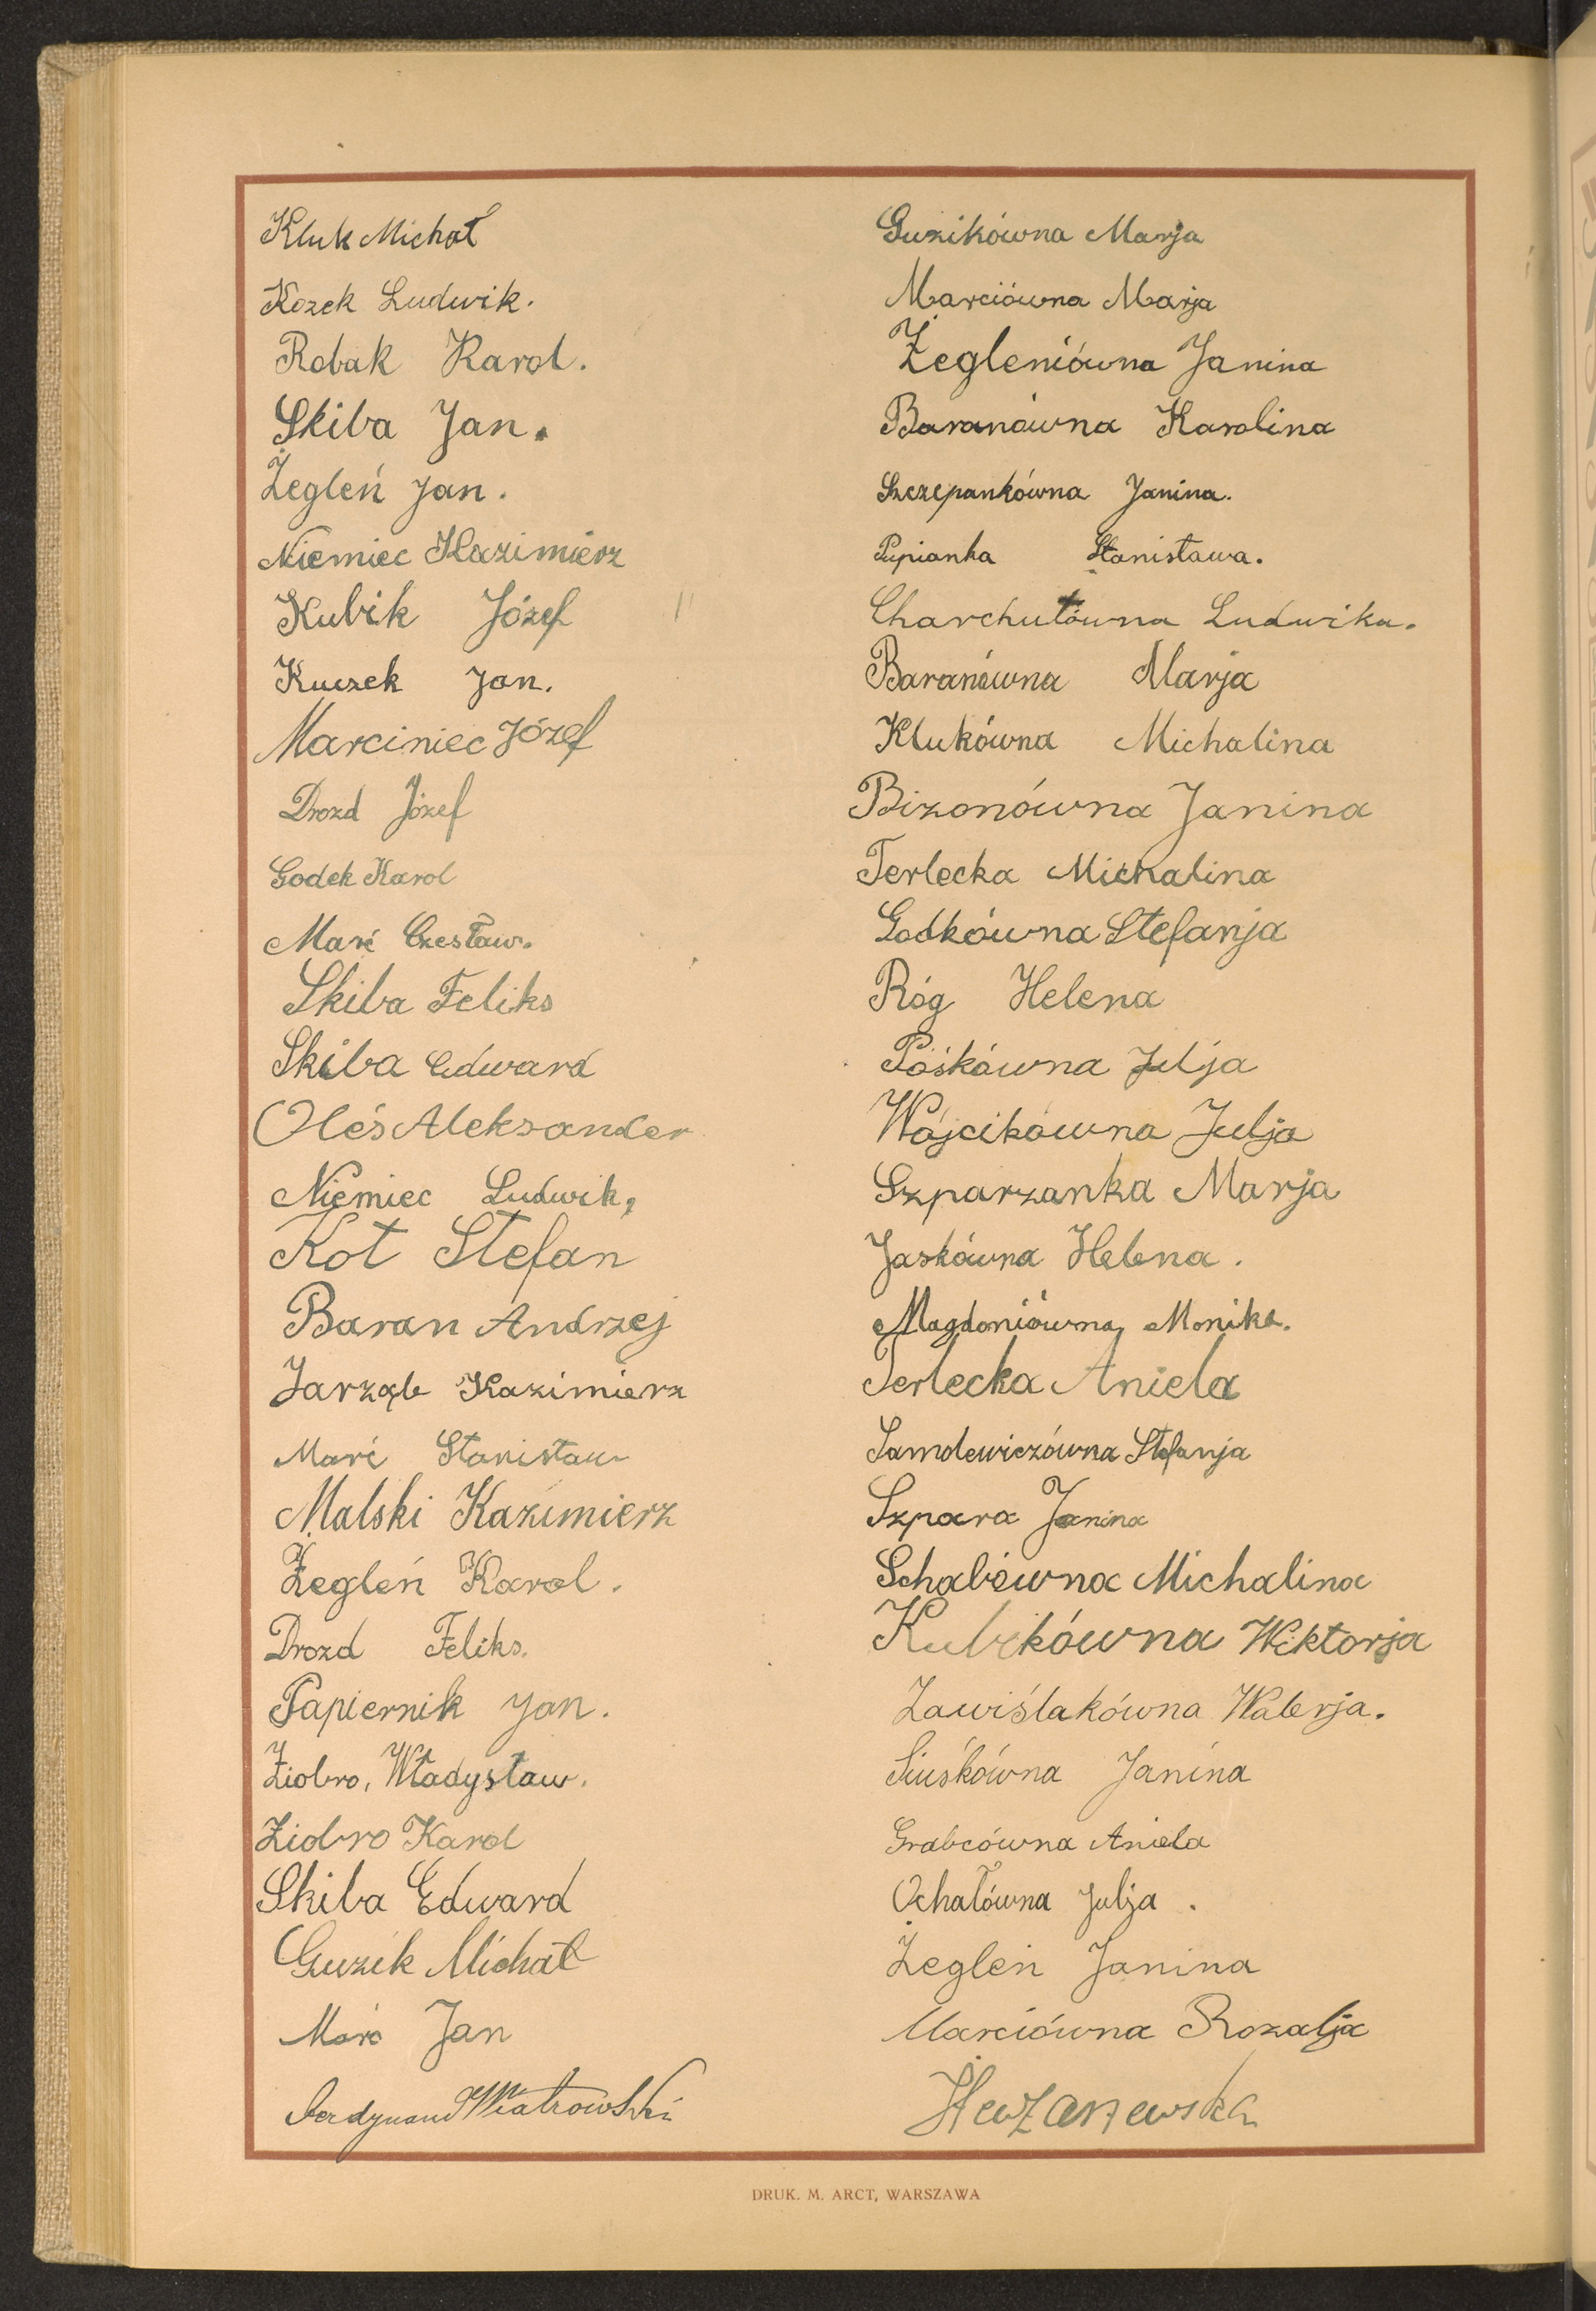 Kluk Michał
Kozek Ludwik.
Robak Karol.
Skiba Jan.
Żegleń Jan.
Niemiec Kazimierz
Kubik Józef
Kuczek Jan.
Marciniec Józef
Drozd Józef
Godek Karol
Marć Czesław.
Skiba Feliks
Skiba Edward
Oleś Aleksander
Niemiec Ludwik,
Kot Stefan
Baran Andrzej
Jarząb Kazimierz
Marć Stanisław
Malski Kazimierz
Żegleń Karol.
Drozd Feliks.
Papiernik Jan.
Ziobro, Władysław.
Ziobro Karol
Skiba Edward
Guzik Michał
Marć Jan
Ferdynand Wiatrowski
Guzikówna Marja
Marciówna Marja
Żegleniówna Janina
Baranówna Karolina
Szczepankówna Janina.
Pupianka Stanisława.
Charchutówna Ludwika.
Baranówna Marja
Klukówna Michalina
Bizonówna Janina
Terlecka Michalina
Godkówna Stefanja
Róg Helena
Pośkówna Julja
Wójcikówna Julja
Szparzanka Marja
Jaskówna Helena.
Magdoniówna, Monika.
Terlecka Aniela
Samolewiczówna Stefanja
Szpara Janina
Schabówna Michalina
Kubikówna Wiktorja
Zawiślakówna Walerja.
Siuśkówna Janina
Grabcówna Aniela
Ochałówna Julja.
Żegleń Janina
Marciówna Rozalja
DRUK. M. ARCT, WARSZAWA